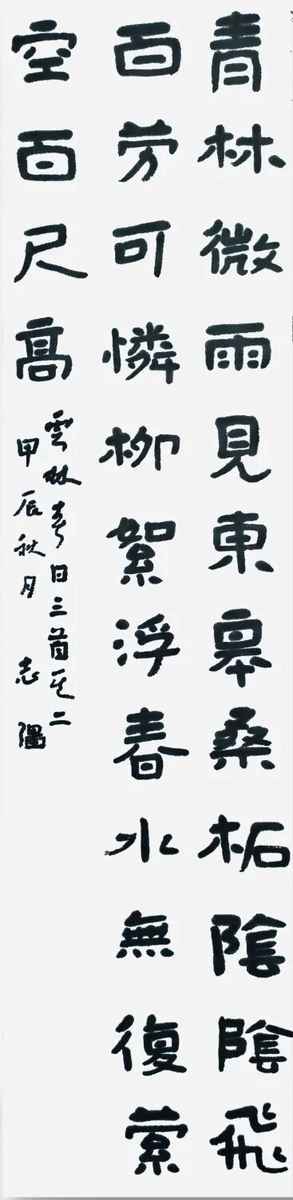 青林微雨見東皋桑柘陰陰飛
百勞可憐柳絮浮春水無復縈
空百尺高
雲林春日三首其二
甲辰秋月 志隅